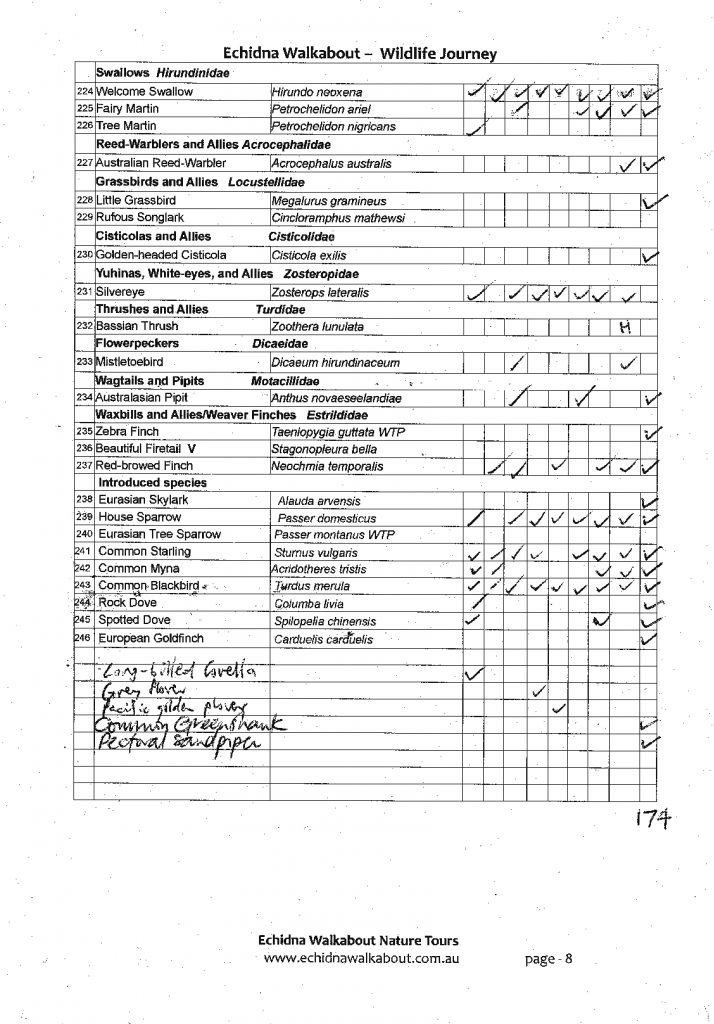 Echidna Walkabout – Wildlife Journey
Swallows Hirundinidae
224 Welcome Swallow Hirundo neoxena
225 Fairy Martin Petrochelidon ariel
226 Tree Martin Petrochelidon nigricans
Reed-Warblers and Allies Acrocephalidae
227 Australian Reed-Warbler Acrocephalus australis
Grassbirds and Allies Locustellidae
228 Little Grassbird Megalurus gramineus
229 Rufous Songlark Cincloramphus mathewsi
Cisticolas and Allies Cisticolidae
230 Golden-headed Cisticola Cisticola exilis
Yuhinas, White-eyes, and Allies Zosteropidae
231 Silvereye Zosterops lateralis
Thrushes and Allies Turdidae
232 Bassian Thrush Zoothera lunulata H
Flowerpeckers Dicaeidae
233 Mistletoebird Dicaeum hirundinaceum
Wagtails and Pipits Motacillidae
234 Australasian Pipit Anthus novaeseelandiae
Waxbills and Allies/Weaver Finches Estrildidae
235 Zebra Finch Taeniopygia guttata WTP
236 Beautiful Firetail V Stagonopleura bella
237 Red-browed Finch Neochmia temporalis
Introduced species
238 Eurasian Skylark Alauda arvensis
239 House Sparrow Passer domesticus
240 Eurasian Tree Sparrow Passer montanus WTP
241 Common Starling Sturnus vulgaris
242 Common Myna Acridotheres tristis
243 Common Blackbird Turdus merula
244 Rock Dove Columba livia
245 Spotted Dove Spilopelia chinensis
246 European Goldfinch Carduelis carduelis
Long-billed Corella
Grey Plover
Pacific golden plover
Common Greenshank
Pectoral Sandpiper
174
Echidna Walkabout Nature Tours
www.echidnawalkabout.com.au page - 8